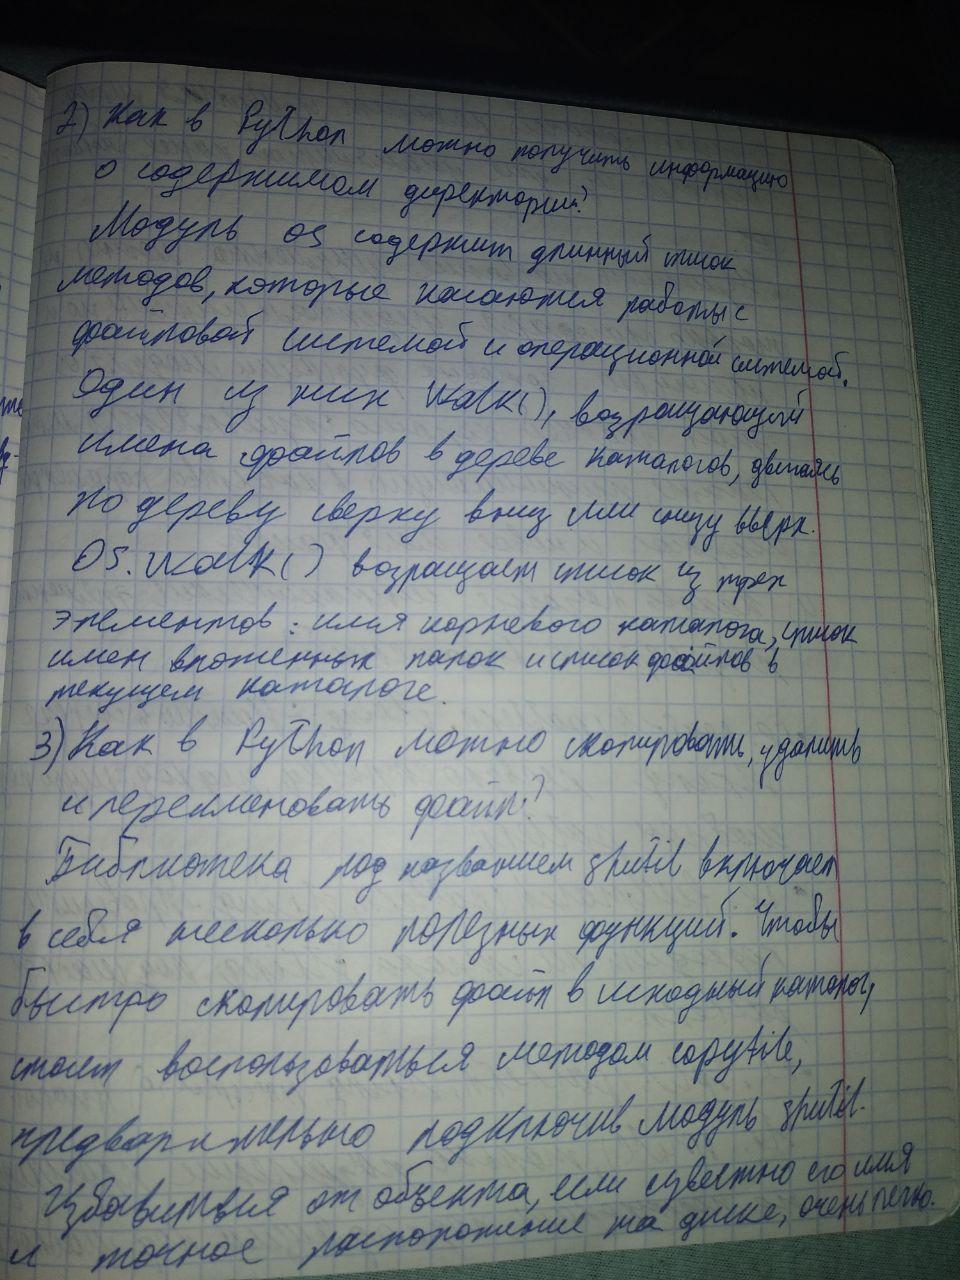 2) Как в Python можно получить информацию
о содержимом директории?
Модуль os содержит длинный список
методов, которые касаются работы с
файловой системой и операционной системой.
Один из них walk(), возращающий
имена файлов в дереве каталогов, двигаясь
по дереву сверху вниз или снизу вверх.
OS.walk() возращает список из трех
элементов: имя корневого каталога, список
имен вложенных папок и список файлов в
текущем каталоге.
3) Как в Python можно скопировать, удалить
и переименовать файл?
Библиотека под названием shutil включает
в себя несколько полезных функций. Чтобы
быстро скопировать файл в исходный каталог,
стоит воспользоваться методом copyfile,
предварительно подключив модуль shutil.
Избавиться от объекта, если известно его имя
и точное расположение на диске, очень легко.